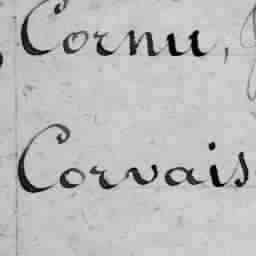 Cornu,
Corvais